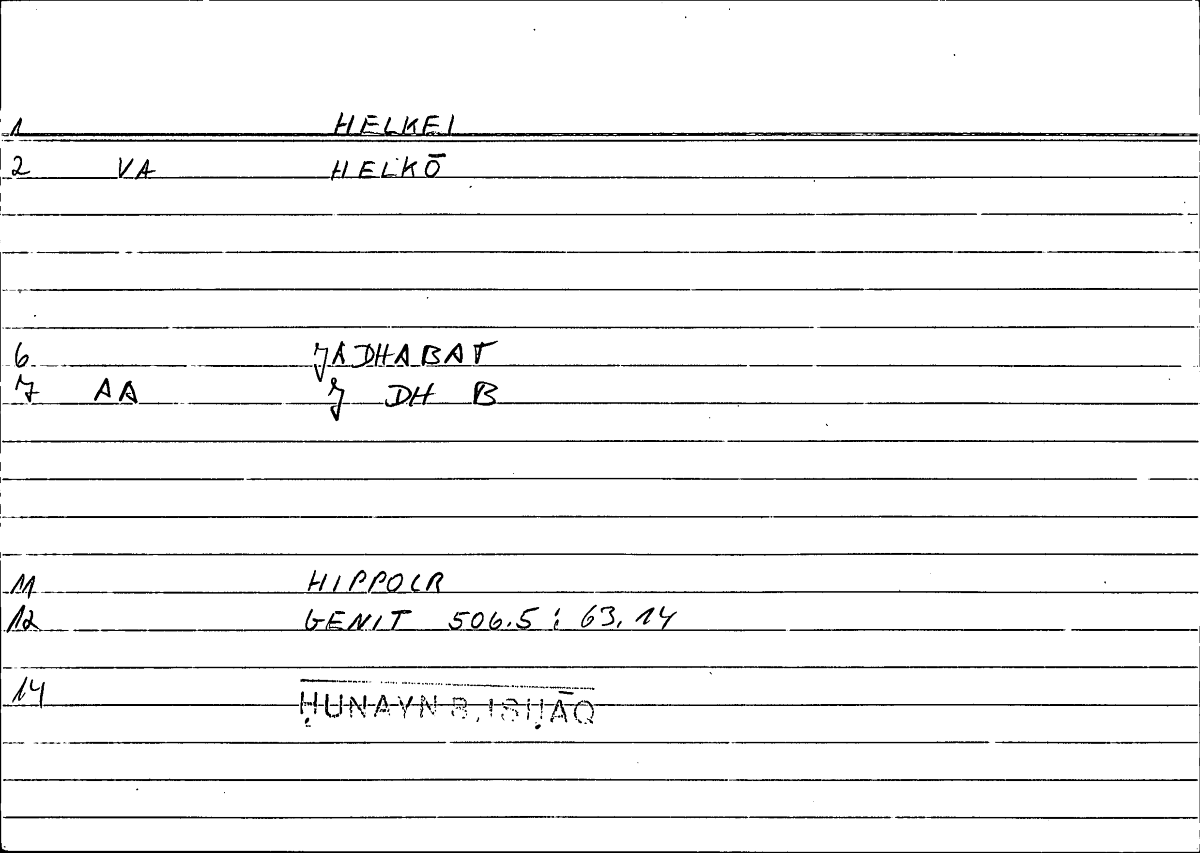 1 HELKEI
2 VA HELKŌ
6 JADHABAT
7 AA J DH B
11 HIPPOCR
12 GENIT 506.5 ; 63.14
14 ḤUNAYN B. ISḤĀQ